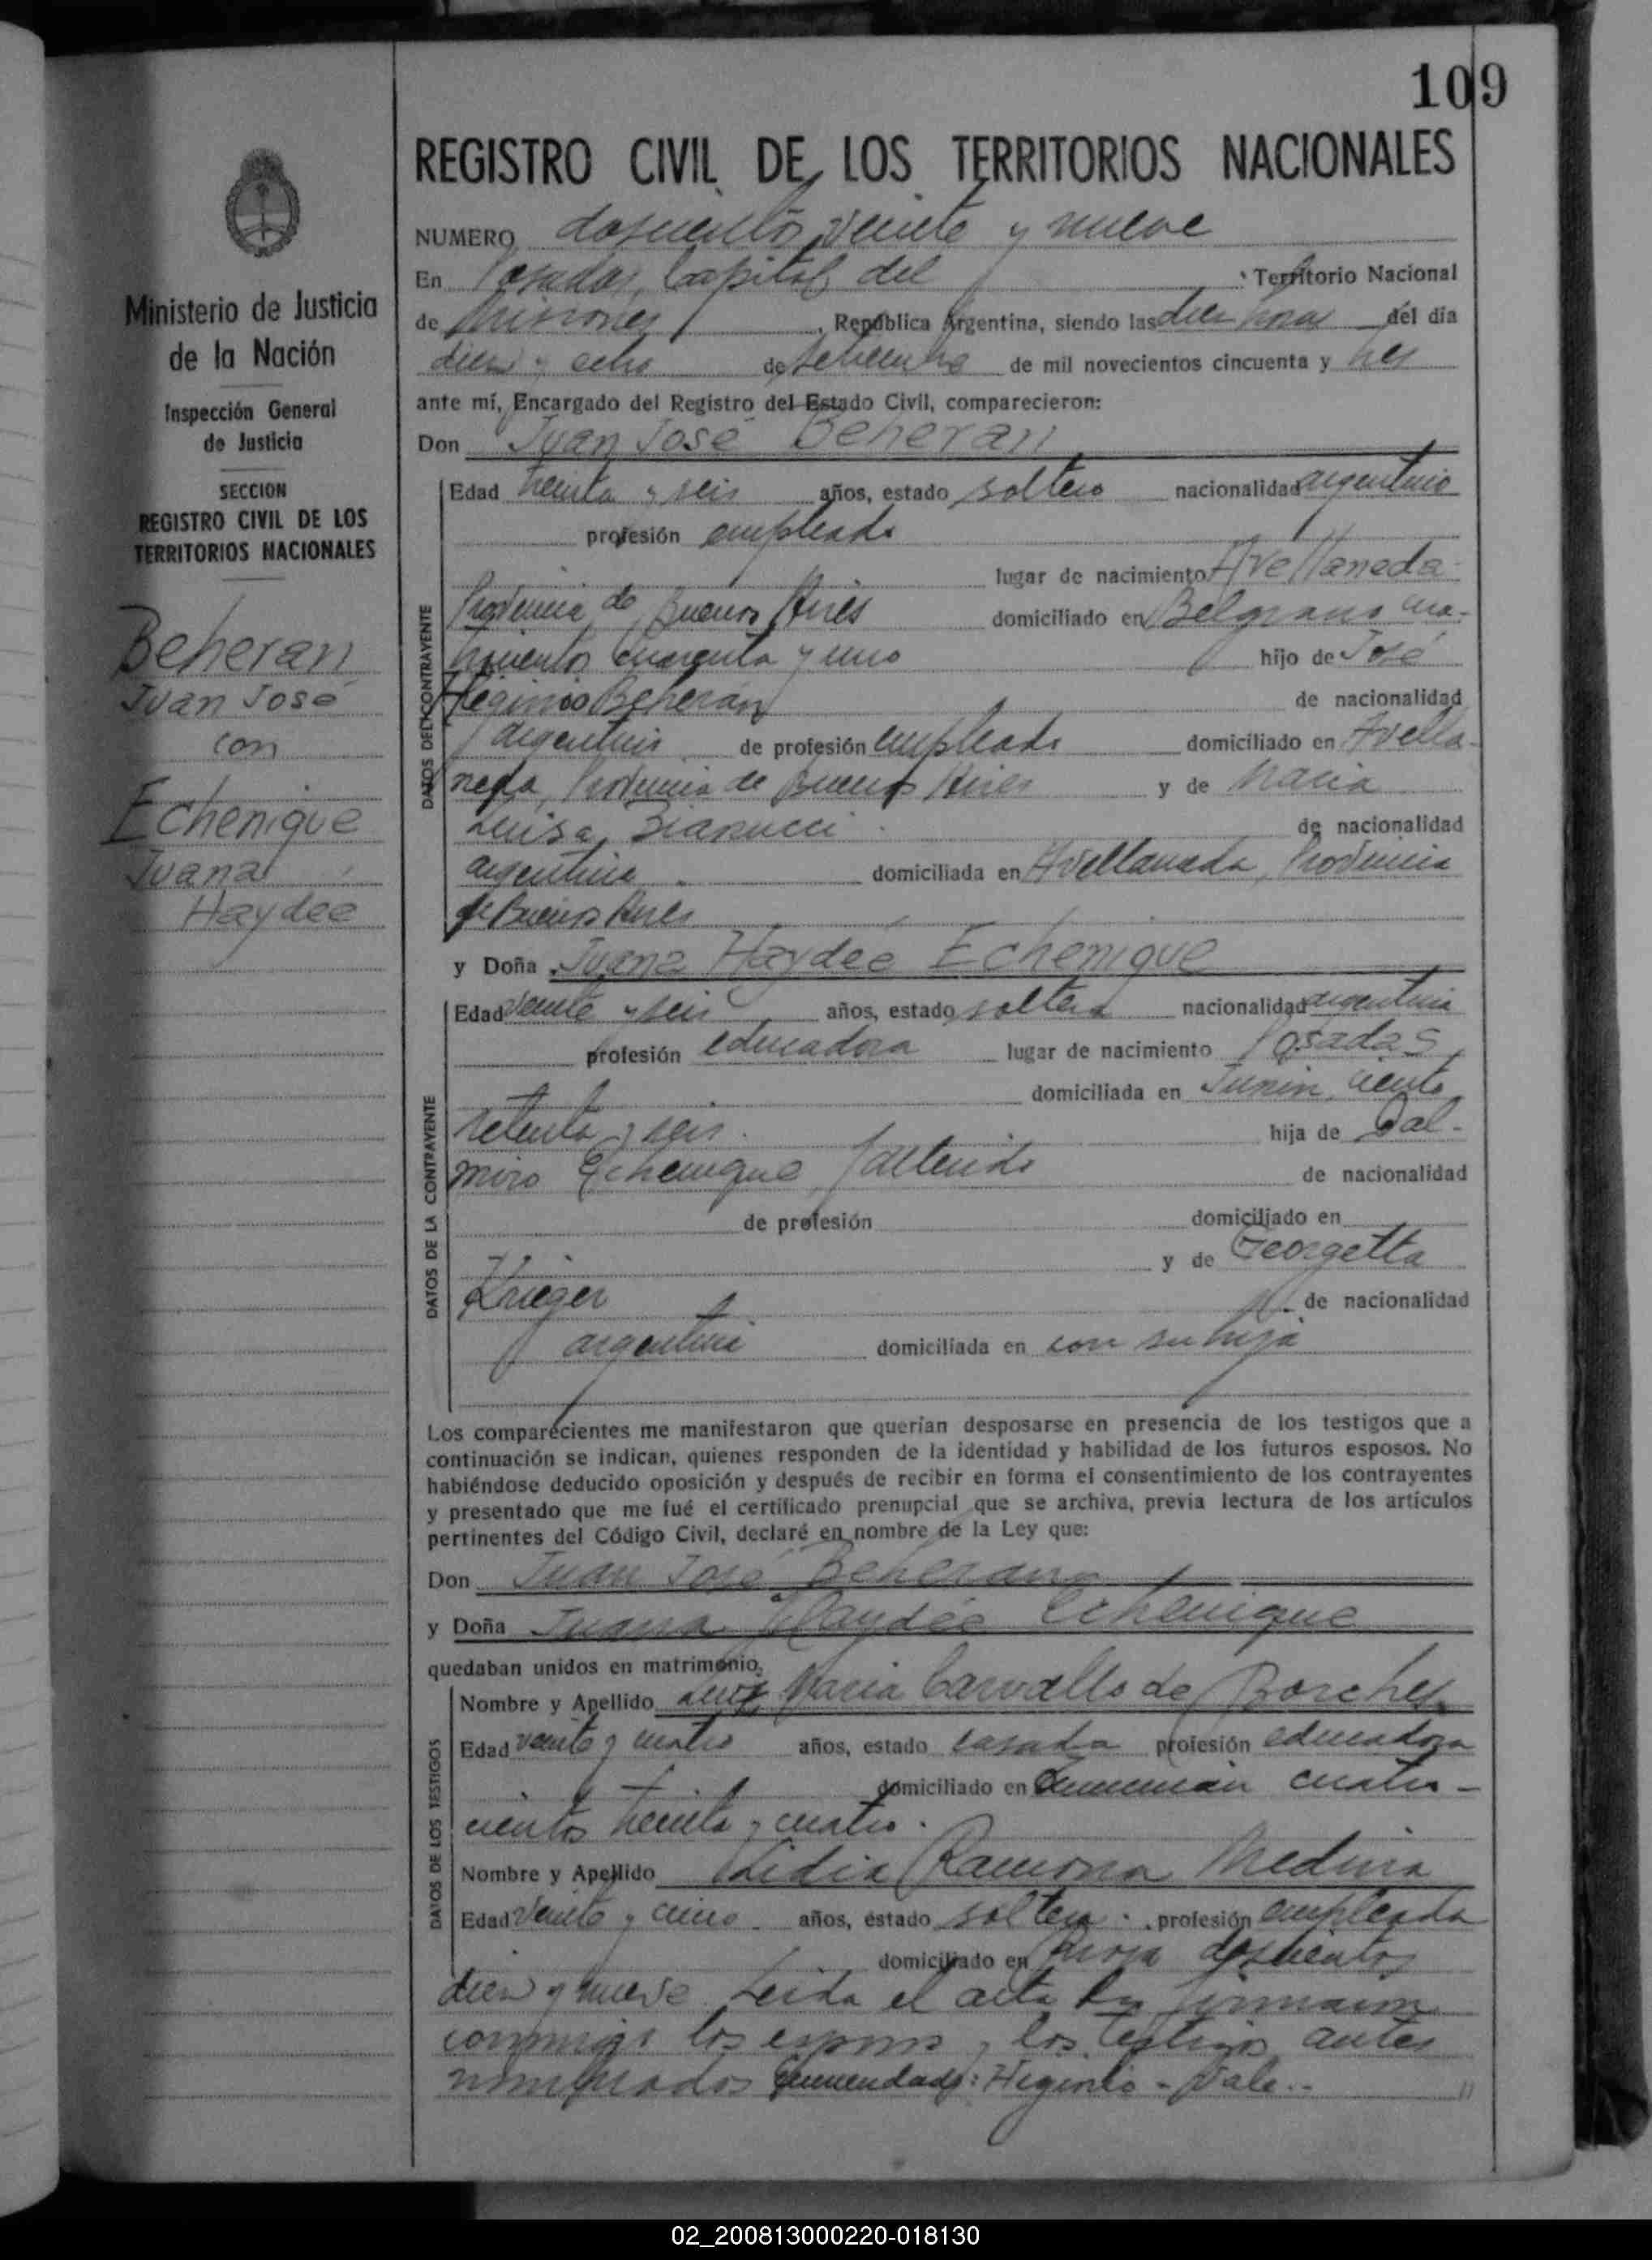 109
REGISTRO CIVIL DE LOS TERRITORIOS NACIONALES
Ministerio de Justicia
de la Nación
Inspección General
de Justicia
SECCION
REGISTRO CIVIL DE LOS
TERRITORIOS NACIONALES
Beheran
Juan José
con
Echenique
Juana
Haydée
NUMERO doscientos veinte y nueve
En Posadas, Capital del Territorio Nacional
de Misiones, República Argentina, siendo las diez horas del día
diez y ocho de setiembre de mil novecientos cincuenta y tres
ante mí, Encargado del Registro del Estado Civil, comparecieron:
Don Juan José Beheran
DATOS DEL CONTRAYENTE
Edad treinta y seis años, estado soltero nacionalidad argentino
profesión empleado
lugar de nacimiento Avellaneda
Provincia de Buenos Aires domiciliado en Belgrano cua-
trocientos cuarenta y uno hijo de José
Higinio Beherán de nacionalidad
argentino de profesión empleado domiciliado en Avella-
neda, Provincia de Buenos Aires y de María
Luisa de nacionalidad
argentina domiciliada en Avellaneda, Provincia
de Buenos Aires
y Doña Juana Haydée Echenique
DATOS DE LA CONTRAYENTE
Edad veinte y seis años, estado soltera nacionalidad argentina
profesión educadora lugar de nacimiento Posadas
domiciliada en Junín, ciento
setenta y seis. hija de Dal-
miro Echenique fallecido de nacionalidad
de profesión domiciliado en
y de Georgetta
Krieger de nacionalidad
argentina domiciliada en con su hija
Los comparecientes me manifestaron que querían desposarse en presencia de los testigos que a
continuación se indican, quienes responden de la identidad y habilidad de los futuros esposos. No
habiéndose deducido oposición y después de recibir en forma el consentimiento de los contrayentes
y presentado que me fué el certificado prenupcial que se archiva, previa lectura de los artículos
pertinentes del Código Civil, declaré en nombre de la Ley que:
Don Juan José Beheran
y Doña Juana Haydée Echenique
quedaban unidos en matrimonio.
DATOS DE LOS TESTIGOS
Nombre y Apellido Luz María Carvallo de Borches
Edad veinte y cuatro años, estado casada profesión educadora
domiciliado en cuatro-
cientos treinta y cuatro.
Nombre y Apellido Lidia Ramona Medina
Edad veinte y cinco años, estado soltera. profesión empleada
domiciliado en Rioja doscientos
diez y nueve. Leida el acta la firmaron
conmigo los esposos y los testigos antes
nombrados Enmendado: Higinio - Vale.-
02_200813000220-018130